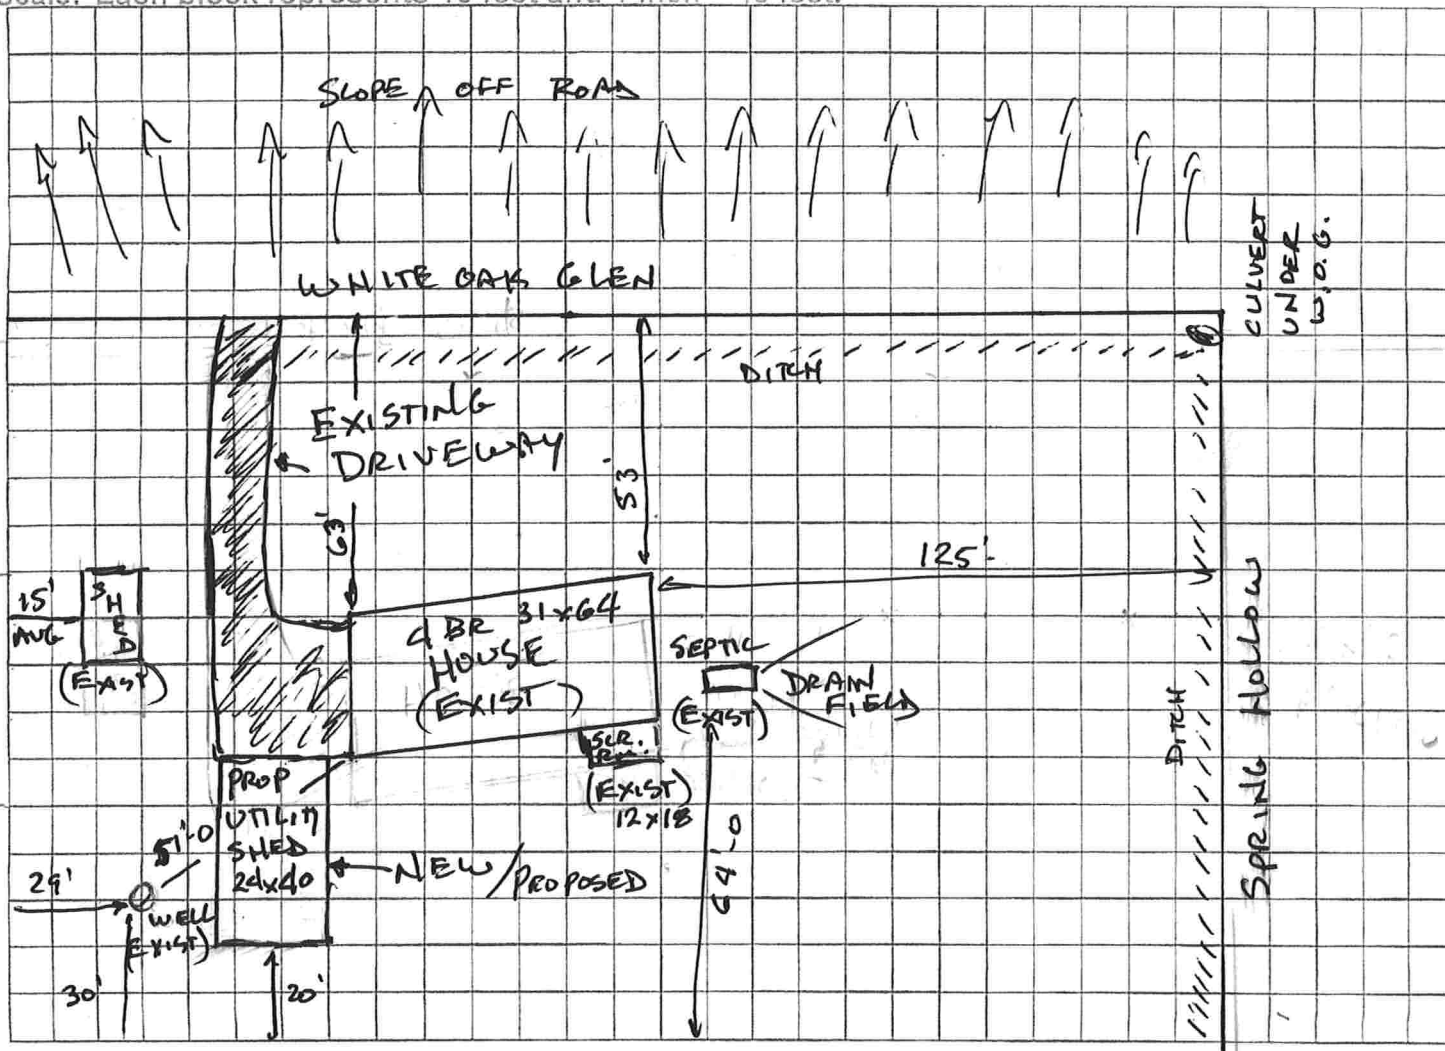 SLOPE OFF ROAD
WHITE OAK GLEN
CULVERT
UNDER
W.O.G.
DITCH
EXISTING
DRIVEWAY
63'
53'
125'-
15'
AVG
SHED
(EXIST)
4 BR 31x64
HOUSE
(EXIST)
SEPTIC
(EXIST)
DRAIN
FIELD
SCR.
RM.
(EXIST)
12x18
DITCH
SPRING HOLLOW
PROP
UTILITY
SHED
24x40
NEW/PROPOSED
51'-0
29'
WELL
(EXIST)
30'
20'
64'-0